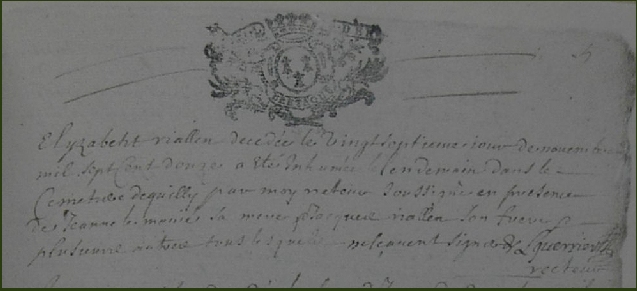 Elyzabeht riallen decedée le vingt septieme iour de novembre
mil sept Cent douzes a eté Inhumée le lendemain dans le
Cemetiere de quilly par moy recteur soussigné en presence
de Jeanne sa mere Jacques riallen son frere
plusieurs autres tous lesquels ne sçavent signer
recteur